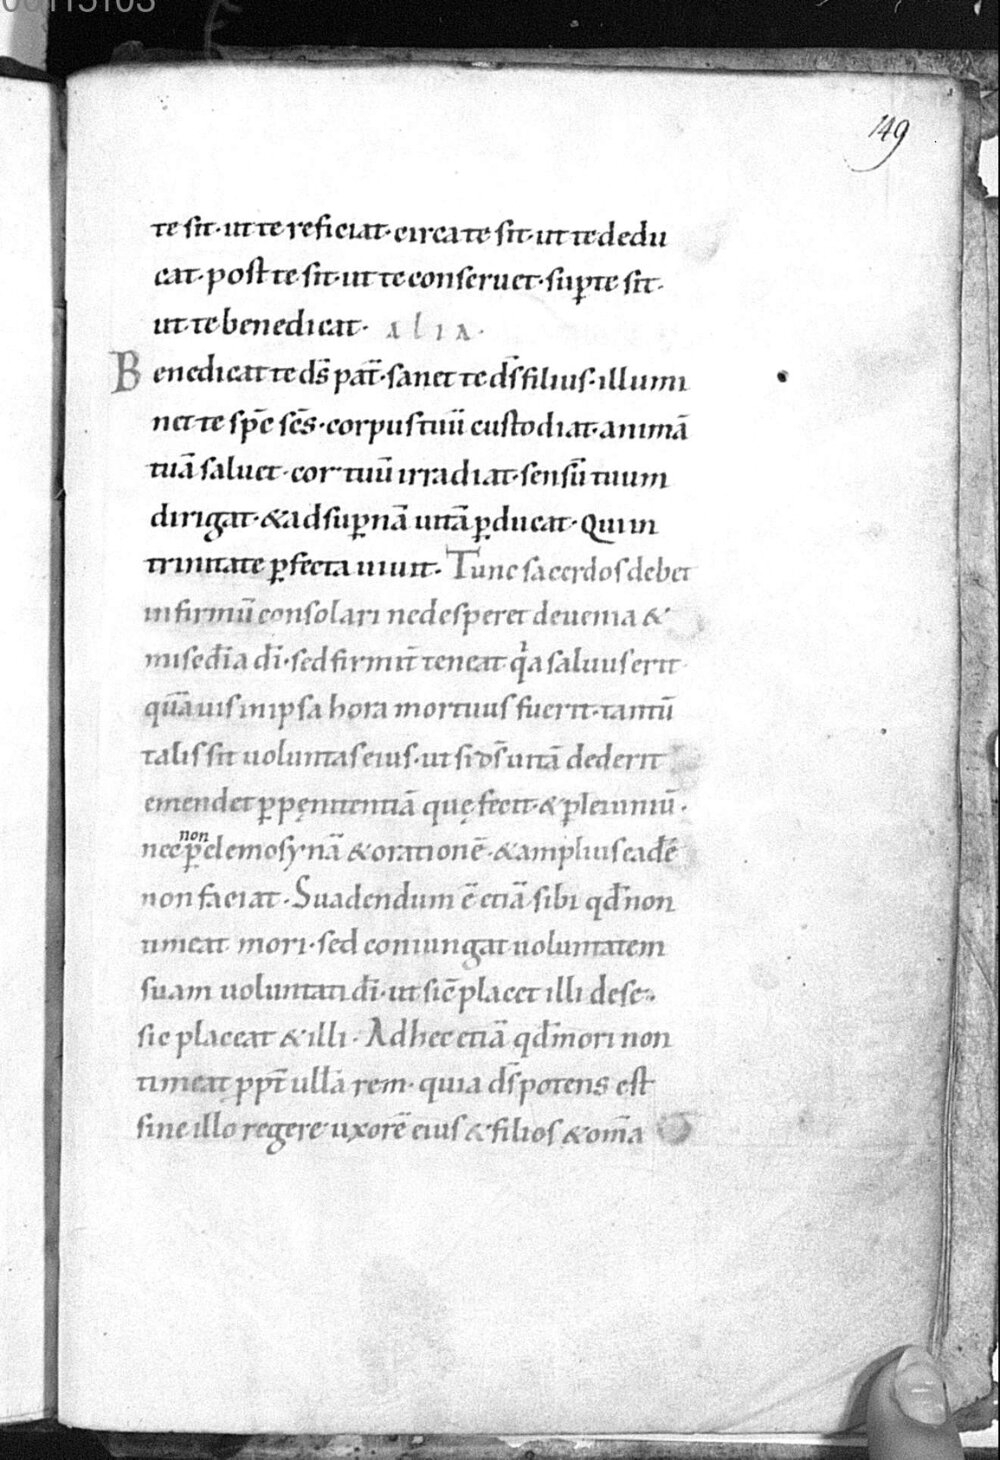 149
te sit· ut te reficiat· circa te sit· ut te dedu
cat· post te sit· ut te conseruet· sup te sit·
ut te benedicat· ALIA·
Benedicat te ds̄ pat̄· sanet te ds̄ filius· illumi
net te sp̄c sc̄s· corpus tuū custodiat· animā
tuā saluet· cor tuū irradiat· sensū tuum
dirigat· & ad sup̱nā uitā p̱ducat· Qui in
trinitate p̱fecta uiuit· Tunc sacerdos debet
infirmū consolari ne desperet de uenia &
miscd̄ia dī· sed firmit̄ teneat qⁱa saluus erit
quāuis in ipsa hora mortuus fuerit· tantū
talis sit uoluntas eius· ut si ds̄ uitā dederit
emendet p̱ pęnitentiā quę fecit· & p̱ ieiuniū·
nec non p̱ elemosynā & orationē· & amplius eadē
non faciat· Suadendum ē etiā sibi qd̄ non
timeat mori· sed coniungat uoluntatem
suam uoluntati dī· ut sic̄ placet illi de se·
sic placeat & illi· Ad hec etiā qd̄ mori non
timeat ppt̄ ullā rem· quia ds̄ potens est
sine illo regere uxorē eius & filios & om̄a